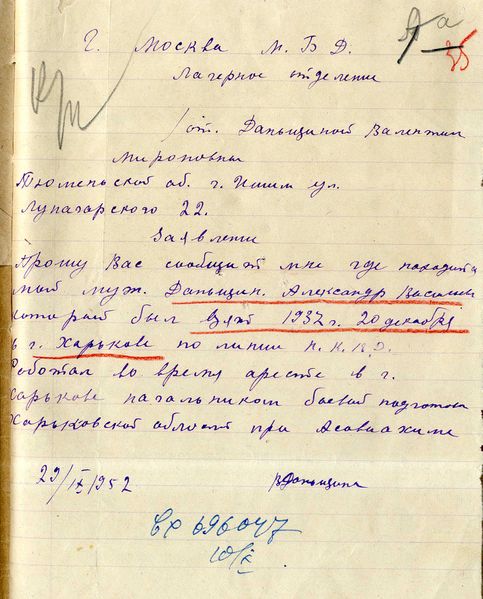 Аа
35
Г. Москва М.Б.Д.
Лагерное отделение
/от. Даньщиной Валентин
Мироновны
Тюменьской об. г. Ишим ул.
Луначарского 22.
Заявление
Прошу Вас сообщит мне где находится
мой муж. Даньщин, Александр Василиев
который был взят 1937 г. 20 декабря
в г. Харькове по линии Н.К.В.Д.
Роботал во время аресте в г.
Харькове начальником боевой подготов
Харьковской области при Асавиахиме
29/IX 1952 ВДаньщина
Вх 696047
10/X